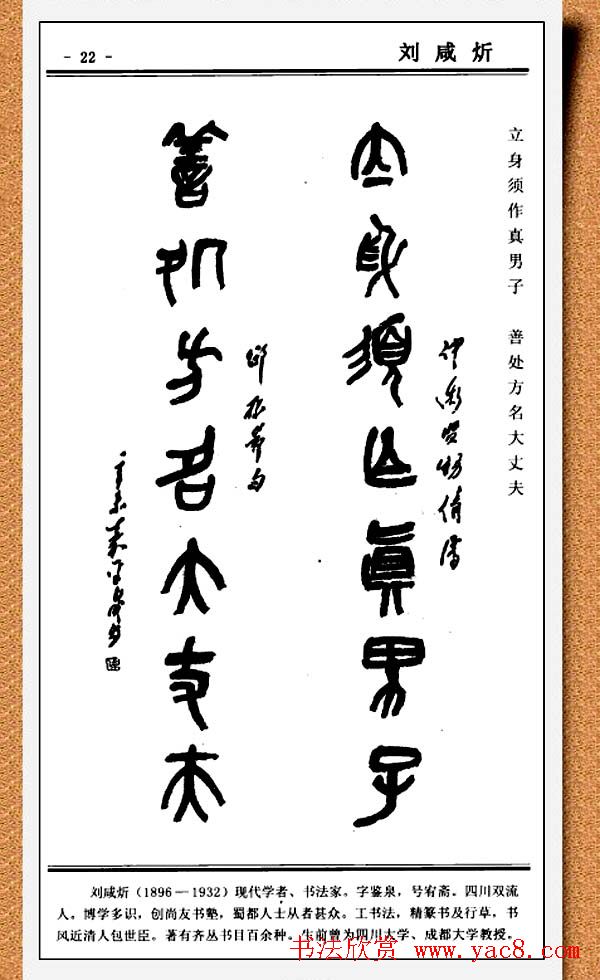 - 22 -
刘咸炘
立身须作真男子 善处方名大丈夫
立身须作真男子
善处方名大丈夫
刘咸炘(1896—1932)现代学者、书法家。字鉴泉,号宥斋。四川双流
人。博学多识,创尚友书塾,蜀都人士从者甚众。工书法,精篆书及行草,书
风近清人包世臣。著有齐丛书目百余种。生前曾为四川大学、成都大学教授。
书法欣赏 www.yac8.com